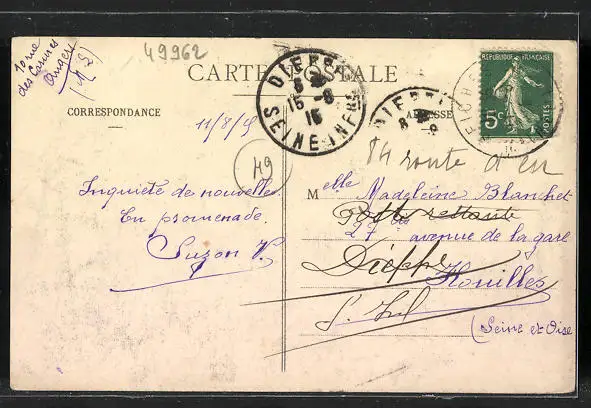 10 rue
des Carmes
Angers
(M. L)
49962
CARTE POSTALE
CORRESPONDANCE
ADRESSE
RÉPUBLIQUE FRANÇAISE
5c
POSTES
DIEPPE
15 -8
15
SEINE-INFRE
DIEPPE
11/8/15
49
84 route d'eu
Inquiète de nouvelles
En promenade.
Suzon V.
Melle Madeleine Blanchet
Poste restante
27 bis avenue de la gare
Dieppe
Houilles
S. Inf
(Seine et Oise